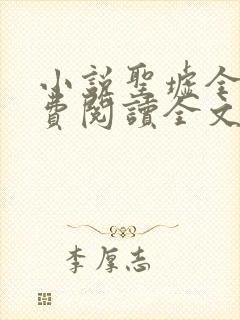 小説聖墟全
費閱讀全文
李厚志